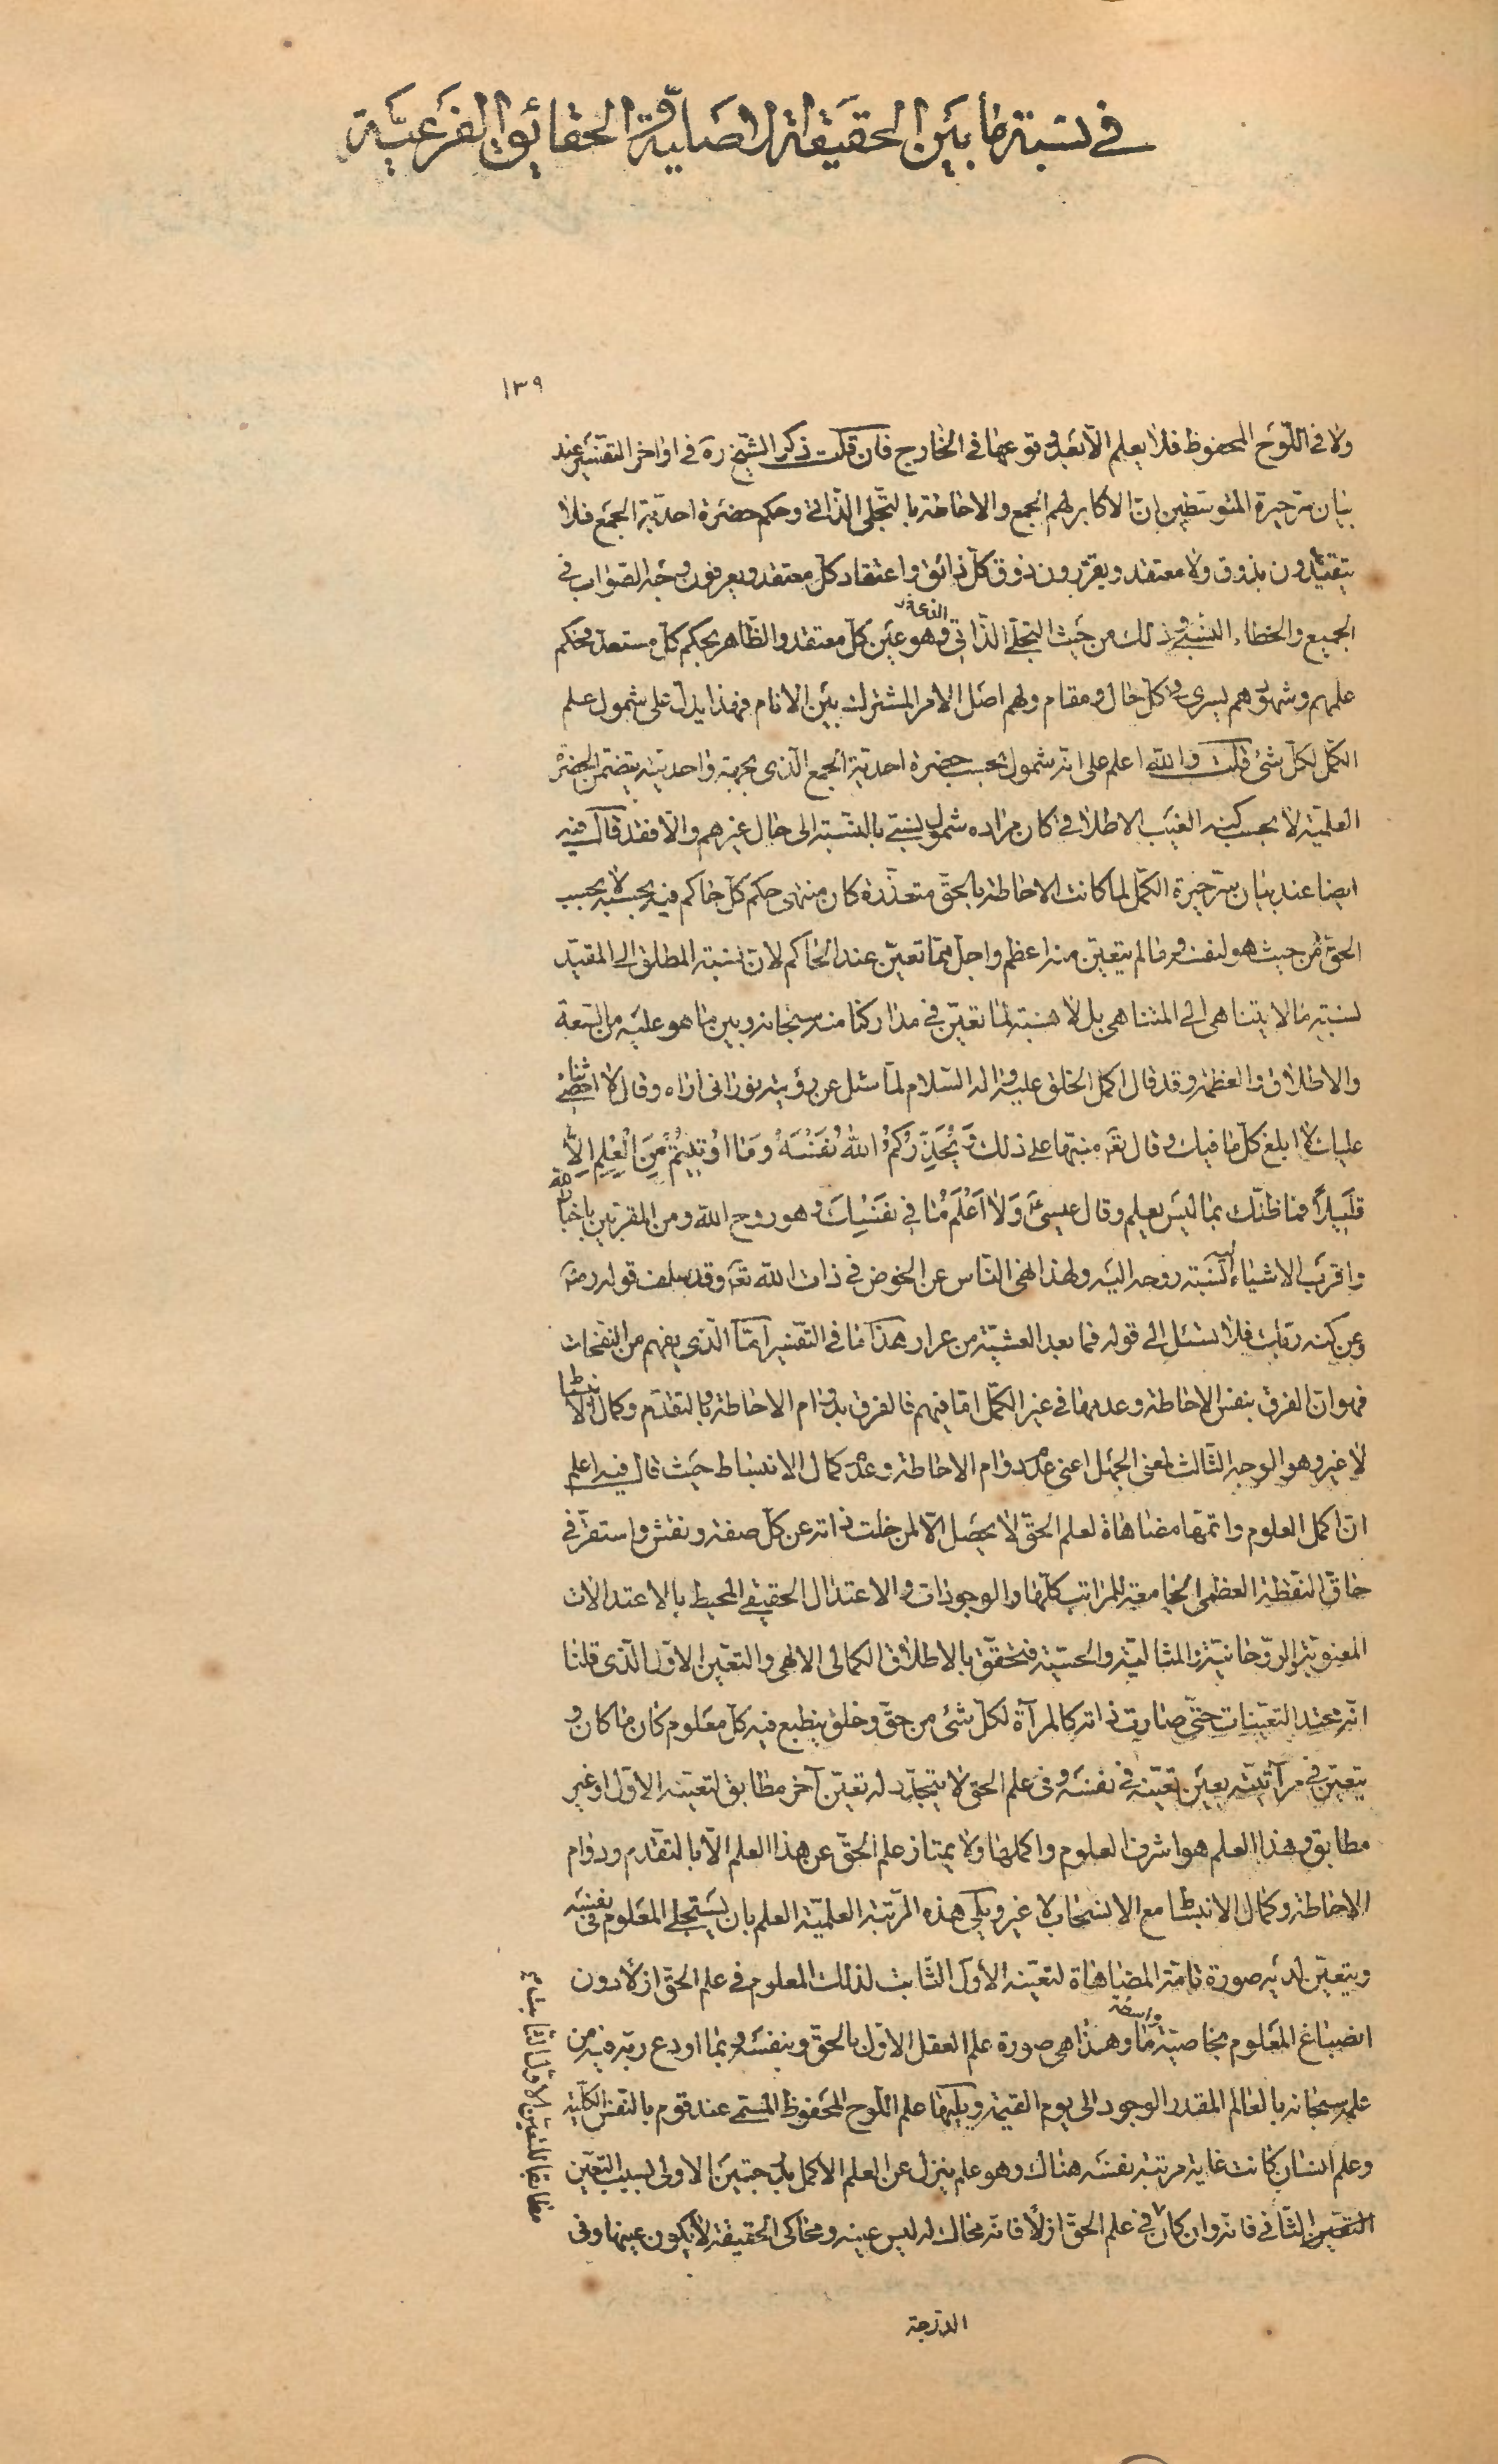 في نسبة ما بين الحقيقة الاصلية والحقائق الفرعية
١٣٩
ولا في اللوح المحفوظ فلا يعلم الا بعد وقوعها في الخارج فان قلت ذكر الشيخ ره في اواخر التفسير عند
بيان سر حيرة المتوسطين ان الاكابر لهم الجمع والاحاطة بالتجلى الذاتي وحكم حضرة احدية الجمع فلا
يتقيدون بذوق ولا معتقد ويقررون ذوق كل ذائق واعتقاد كل معتقد ويعرفون وجه الصواب في
الجميع والخطاء النسبي وذلك من حيث التجلى الذاتي الذي هو عين كل معتقد والظاهر بحكم كل مستعد فحكم
علمهم وشهودهم يسرى في كل حال ومقام ولهم اصل الامر المشترك بين الانام فهذا يدل على شمول علم
الكمل لكل شئ قلت والله اعلم على انه شمول بحسب حضرة احدية الجمع الذى بجهة واحديته يتضمن الحضرة
العلمية لا بحسب كنه الغيب الاطلاقي كان مراده شمول نسبي بالنسبة الى حال غيرهم والا فقد قال فيه
ايضا عند بيان سر حيرة الكمل لما كانت الاحاطة بالحق متعذرة كان منتهى حكم كل حاكم فيه بحسبه لا بحسب
الحق من حيث هو لنفسه وما لم يتعين منه اعظم واجل مما تعين عند الحاكم لان نسبة المطلق الى المقيد
نسبة ما لا يتناهى الى المتناهى بل لا نسبة لما تعين في مداركنا منه سبحانه وبين ما هو عليه من السعة
والاطلاق والعظمة وقد قال اكمل الخلق عليه واله السلام لما سئل عن رؤيته نور انى اراه وقال لا احصى ثناء
عليك لا ابلغ كل ما فيك وقال تعه منبها على ذلك وَيُحَذِّرُكُمُ اللهُ نَفْسَهُ وَمَا اُوتِيتُمْ مِنَ الْعِلْمِ اِلَّا
قَلِيلًا فما ظنك بما ليس بعلم وقال عيسى ع وَلَا اَعْلَمُ مَا فِي نَفْسِكَ وهو روح الله ومن المقربين باخبار الله
واقرب الاشياء نسبة روحه اليه ولهذا نهى الناس عن الخوض في ذات الله تعه وقد سلف قوله رضه
وعن كنه رقيت فلا تسئل الى قوله فما بعد العشية من عرار هذا ما في التفسير اما الذى يفهم من النفحات
فهو ان الفرق بنفس الاحاطة وعدمها في غير الكمل اما فيهم فالفرق بدوام الاحاطة وبالتقدم وكمال الانبساط
لا غير وهو الوجه الثالث لمعنى الجهل اعنى عدم دوام الاحاطة وعدم كمال الانبساط حيث قال فيه اعلم
ان اكمل العلوم واتمها مضاهاة لعلم الحق لا يحصل الا لمن خلت ذاته عن كل صفة ونقش واستقر في
حاق النقطة العظمى الجامعة للمراتب كلها والوجودات والاعتدال الحقيقي المحيط بالاعتدالات
المعنوية والروحانية والمثالية والحسية فتحقق بالاطلاق الكمالى الالهى والتعين الاول الذى قلنا
انه محتد التعينات حتى صارت ذاته كالمرآة لكل شئ من حق وخلق ينطبع فيه كل معلوم كان ما كان و
يتعين في مرآتيته بعين تعينه في نفسه وفي علم الحق لا يتجدد له تعين آخر مطابق لتعينه الاول او غير
مطابق وهذا العلم هو اشرف العلوم واكملها ولا يمتاز علم الحق عن هذا العلم الا بالتقدم ودوام
الاحاطة وكمال الانبساط مع الانسحاب لا غير ويلى هذه المرتبة العلمية العلم بان يستجلى المعلوم في نفسه
ويتعين لديه صورة تامة المضاهاة لتعينه الاول الثابت لذلك المعلوم في علم الحق ازلا دون
انصباغ المعلوم بخاصية ما واسطة وهذا هى صورة علم العقل الاول بالحق وبنفسه وبما اودع ربه فيه من
علمه سبحانه بالعالم المقدر الوجود الى يوم القيمة ويليها علم اللوح المحفوظ المسمى عند قوم بالنفس الكلية
وعلم انسان كانت غاية مرتبة نفسه هناك وهو علم ينزل عن العلم الاكمل بدرجتين الاولى لسبب التعين
التعين الثاني فانه وان كان في علم الحق ازلا فانه محاك له ليس عينه ومحاكى الحقيقة لا يكون عينها وفي
مطابقا للتعين الاول الثابت
الدرجة